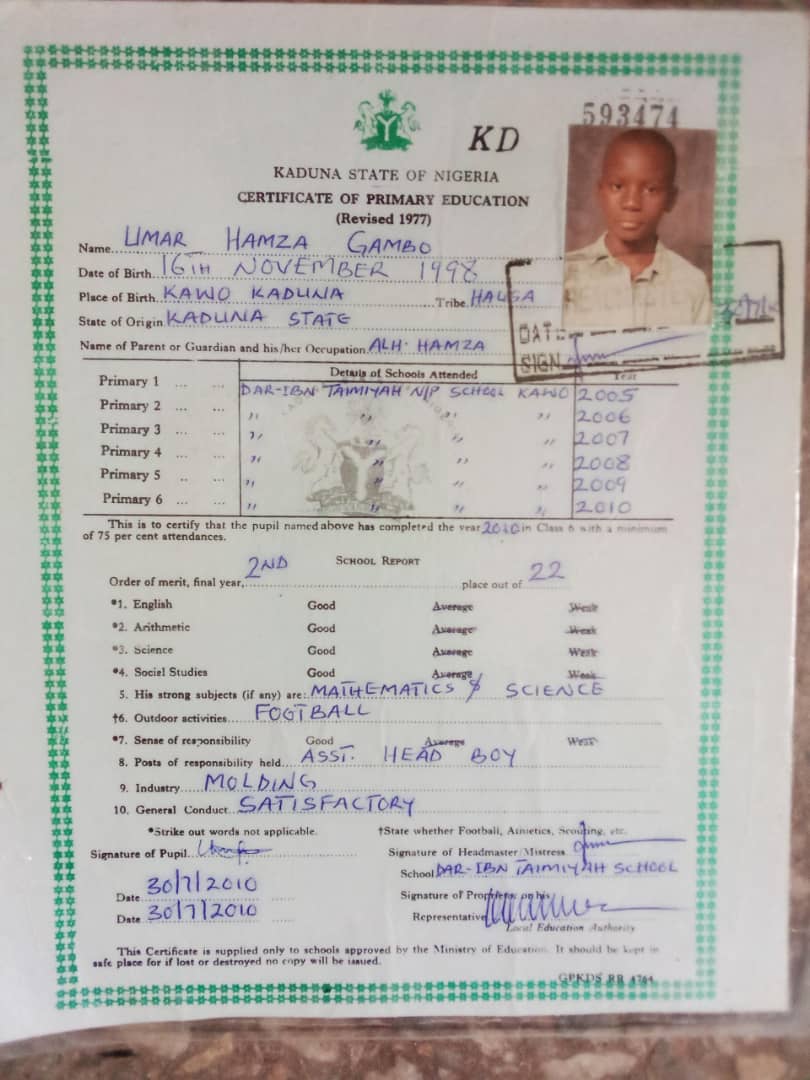 593474
KD
KADUNA STATE OF NIGERIA
CERTIFICATE OF PRIMARY EDUCATION
(Revised 1977)
Name UMAR HAMZA GAMBO
Date of Birth 16TH NOVEMBER 1998
Place of Birth KAWO KADUNA Tribe HAUSA
State of Origin KADUNA STATE
DATE
Name of Parent or Guardian and his/her Occupation ALH. HAMZA
SIGN
Details of Schools Attended Year
Primary 1 ... ... DAR-IBN TAIMIYAH N/P SCHOOL KAWO 2005
Primary 2 ... ... ,, ,, ,, ,, 2006
Primary 3 ... ... ,, ,, ,, ,, 2007
Primary 4 ... ... ,, ,, ,, ,, 2008
Primary 5 ... ... ,, ,, ,, ,, 2009
Primary 6 ... ... ,, ,, ,, ,, 2010
This is to certify that the pupil named above has completed the year 2010 in Class 6 with a minimum
of 75 per cent attendances.
SCHOOL REPORT
Order of merit, final year, 2ND place out of 22
*1. English Good Average Weak
*2. Arithmetic Good Average Weak
*3. Science Good Average Weak
*4. Social Studies Good Average Weak
5. His strong subjects (if any) are: MATHEMATICS & SCIENCE
†6. Outdoor activities FOOTBALL
*7. Sense of responsibility Good Average Weak
8. Posts of responsibility held ASST. HEAD BOY
9. Industry MOLDING
10. General Conduct SATISFACTORY
*Strike out words not applicable. †State whether Football, Athletics, Scouting, etc.
Signature of Pupil Signature of Headmaster/Mistress
School DAR-IBN TAIMIYAH SCHOOL
Date 30/7/2010 Signature of Proprietor or his
Date 30/7/2010 Representative
Local Education Authority
This Certificate is supplied only to schools approved by the Ministry of Education. It should be kept in
safe place for if lost or destroyed no copy will be issued.